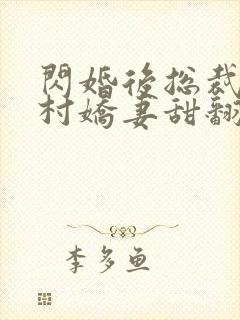 閃婚後總裁
村嬌妻甜翻
李多魚